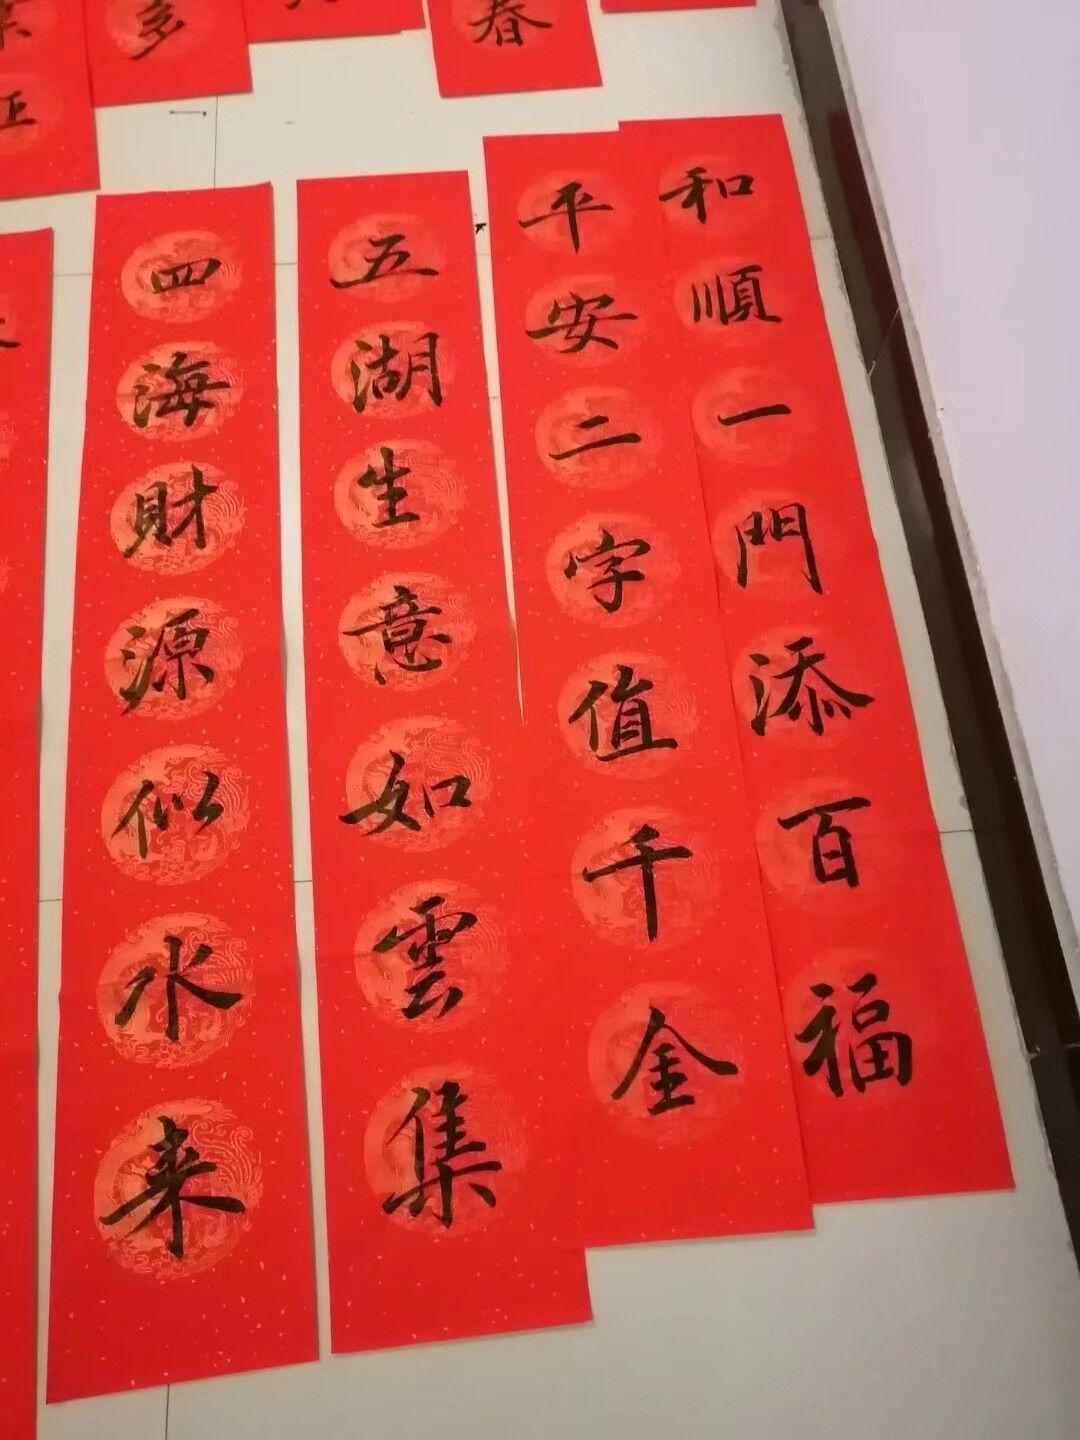 多
春
正
和順一門添百福
平安二字值千金
五湖生意如雲集
四海財源似水来